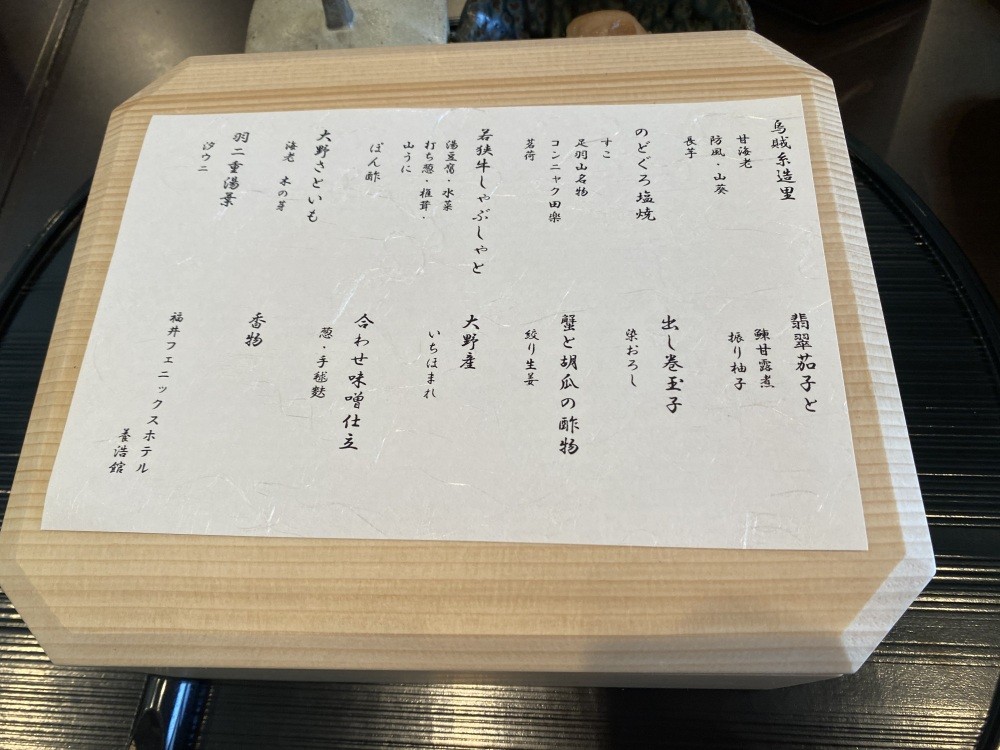 烏賊糸造里
甘海老
防風・山葵
長芋
のどぐろ塩焼
すこ
足羽山名物
コンニャク田楽
茗荷
若狭牛しゃぶしゃと
湯豆腐・水菜
打ち葱・椎茸・
山うに
ぽん酢
大野さといも
海老 木の芽
羽二重湯葉
汐ウニ
翡翠茄子と
鰊甘露煮
振り柚子
出し巻玉子
染おろし
蟹と胡瓜の酢物
絞り生姜
大野産
いちほまれ
合わせ味噌仕立
葱・手毬麩
香物
福井フェニックスホテル
養浩館